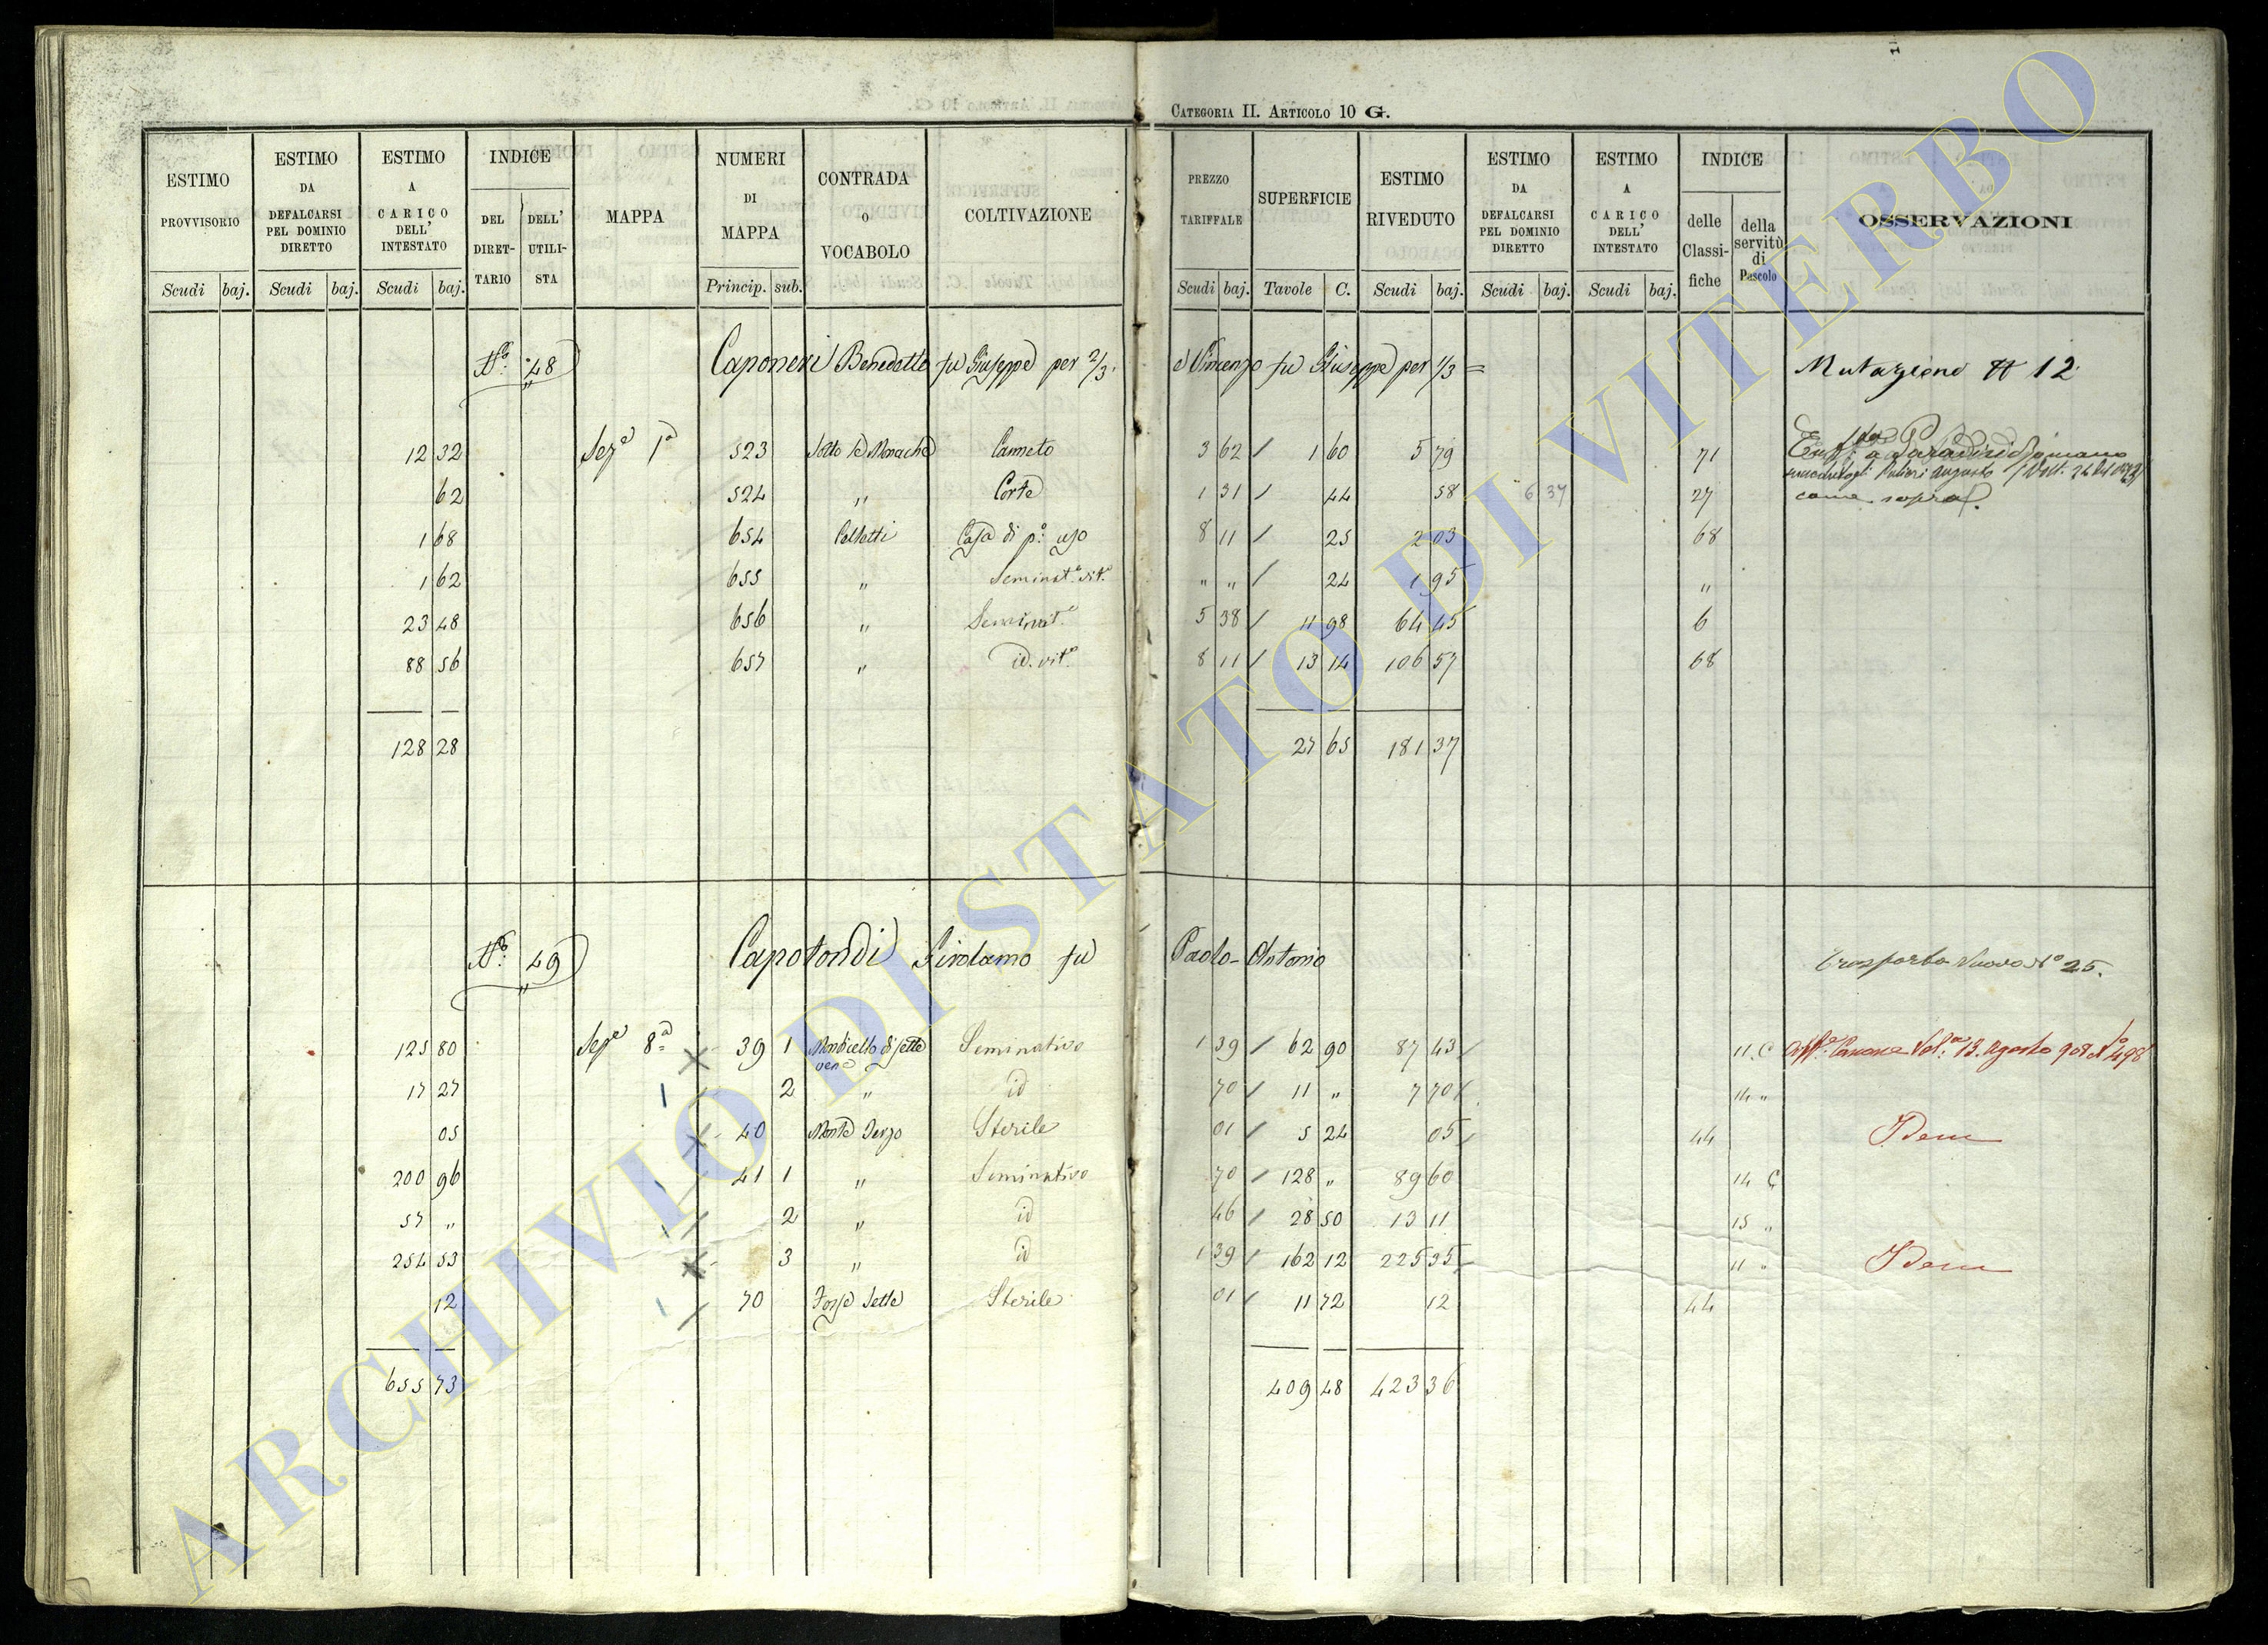 CATEGORIA II. ARTICOLO 10 G.
ESTIMO PROVVISORIO
ESTIMO DA DEFALCARSI PEL DOMINIO DIRETTO
ESTIMO A CARICO DELL' INTESTATO
INDICE
DEL DIRET-TARIO
DELL' UTILI-STA
MAPPA
NUMERI DI MAPPA
CONTRADA O VOCABOLO
COLTIVAZIONE
PREZZO TARIFFALE
SUPERFICIE
ESTIMO RIVEDUTO
ESTIMO DA DEFALCARSI PEL DOMINIO DIRETTO
ESTIMO A CARICO DELL' INTESTATO
INDICE
delle Classi-fiche
della servitù di Pascolo
OSSERVAZIONI
Scudi baj. Scudi baj. Scudi baj. Princip. sub. Scudi baj. Tavole C. Scudi baj. Scudi baj. Scudi baj.
N.º 48 Caponeri Benedetto fu Giuseppe per 2/3. e Vincenzo fu Giuseppe per 1/3 = Mutazione N 12
12 32 Sezª 1ª 523 Sotto le Monache Canneto 3 62 / 1 60 5 79 71
62 524 " Corte 1 31 / 44 58 6 37 27 come sopra
1 68 654 Casa di pº uso 8 11 / 25 2 03 68
1 62 655 " Seminatº vitº " " / 24 1 95 "
23 48 656 " Seminatº 5 38 / 11 98 64 45 6
88 56 657 " id. vitº 8 11 / 13 14 106 57 68
128 28 27 65 181 37
N.º 49 Capotondi Girolamo fu Paolo-Antonio Trasporto Nuovo Nº 25.
125 80 Sezª 8ª 39 1 Monticello di sette vene Seminativo 1 39 / 62 90 87 43 11. C Agosto 908 Nº 498
17 27 2 " id 70 / 11 " 7 70 14 "
05 40 Monte Serzo Sterile 01 / 5 24 05 44 Idem
200 96 41 1 " Seminativo 70 / 128 " 89 60 14 C
57 " 2 " id 46 / 28 50 13 11 15 "
254 53 3 " id 1 39 / 162 12 225 35 11 " Idem
12 70 Sette Sterile 01 / 11 72 12 44
655 73 409 48 423 36
ARCHIVIO DI STATO DI VITERBO